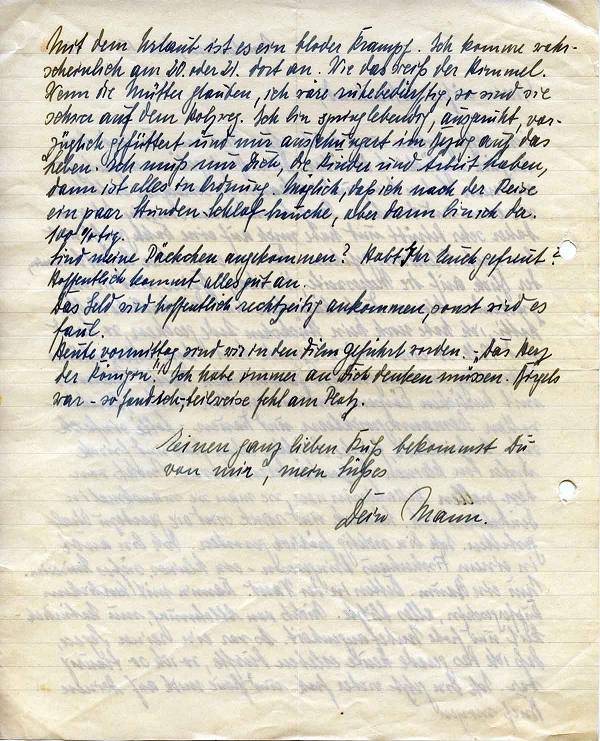 Mit dem Urlaub ist es ein bloder Krampf. Ich komme wahr-
scheinlich am 20. oder 21. dort an. Wie das weiß der Himmel.
Wenn die Mütter glauben, ich wäre ruhebedürftig, so sind sie
schwer auf dem Holzweg. Ich bin springlebendig, ausgeruht, vor-
züglich gefüttert und nur ausgehungert im Bezug auf das
Leben. Ich muß nur Dich, die Kinder und Arbeit haben,
dann ist alles in Ordnung. Möglich, daß ich nach der Reise
ein paar Stunden Schlaf brauche, aber dann bin ich der.
100%tig.
Sind meine Päckchen angekommen? Habt Ihr Euch gefreut?
Hoffentlich kommt alles gut an.
Das Geld wird hoffentlich rechtzeitig ankommen, sonst wird es
faul.
Heute vormittag sind wir in den Film geführt worden. „Das Herz
der Königin". Ich habe immer an Dich denken müssen.
war - so fand ich - teilweise fehl am Platz.
Einen ganz lieben Kuß bekommst Du
von mir, mein Süßes
Dein Mann.